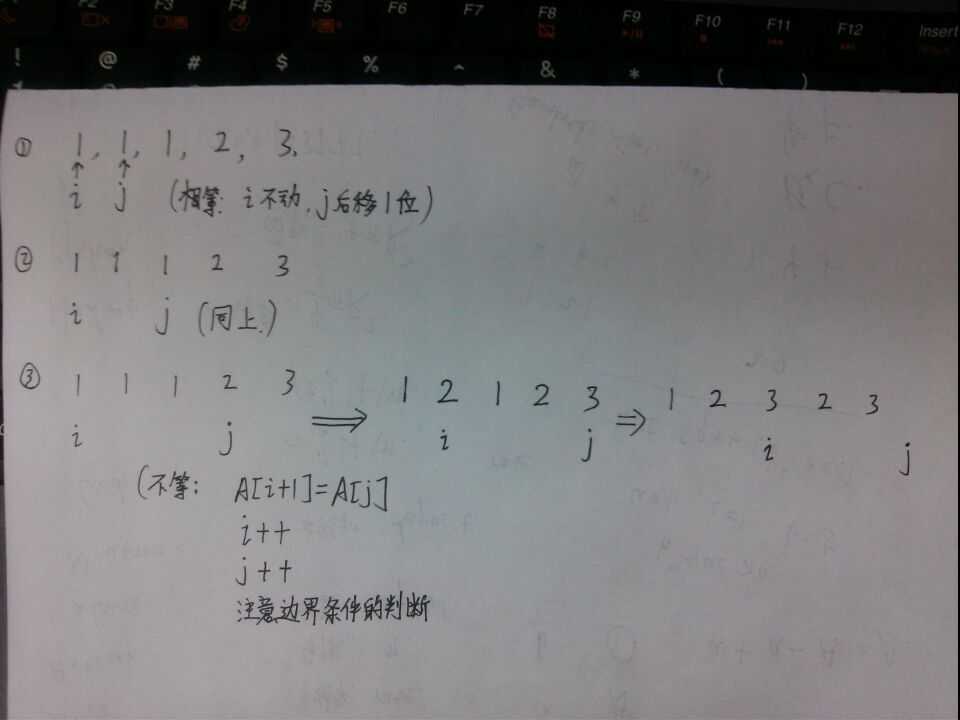 F2 F3 F4 F5 F6 F7 F8 F9 F10 F11 F12 Insert
! @ # $ % ^ & * ( )
① 1, 1, 1, 2, 3.
↑ ↑
i j (相等: i不动, j后移1位)
② 1 1 1 2 3
i j (同上.)
③ 1 1 1 2 3 ⇒ 1 2 1 2 3 ⇒ 1 2 3 2 3
i j i j i j
(不等: A[i+1]=A[j]
i++
j++
注意边界条件的判断